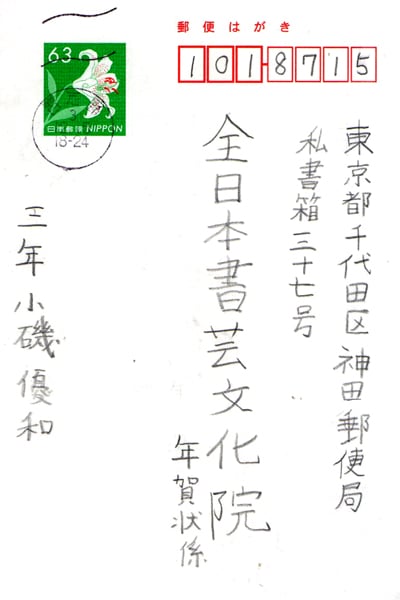 郵便はがき
1018715
63
日本郵便 NIPPON
18-24
東京都千代田区神田郵便局
私書箱三十七号
全日本書芸文化院
年賀状係
三年小磯優和